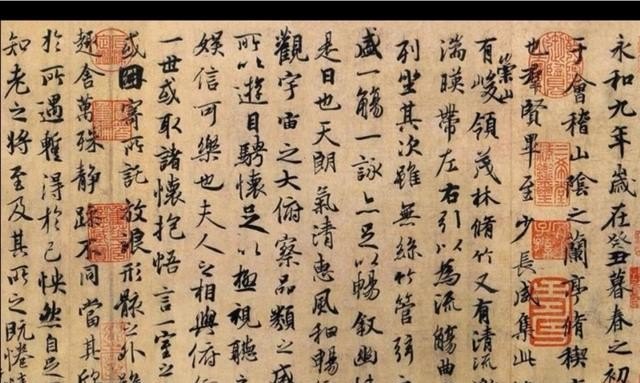 永和九年歲在癸丑暮春之初
于會稽山陰之蘭亭脩稧
也羣賢畢至少長咸集此
有崇山峻領茂林脩竹又有清流
湍暎帶左右引以為流觴曲
列坐其次雖無絲竹管弦之
盛一觴一詠亦足以暢叙幽情
是日也天朗氣清惠風和暢
觀宇宙之大俯察品類之盛
所以遊目騁懷足以極視聽之
娛信可樂也夫人之相與俯仰
一世或取諸懷抱悟言一室之
或因寄所託放浪形骸之外雖
趣舍萬殊静躁不同當其欣
於所遇蹔得於己怏然自足
知老之將至及其所之既惓情